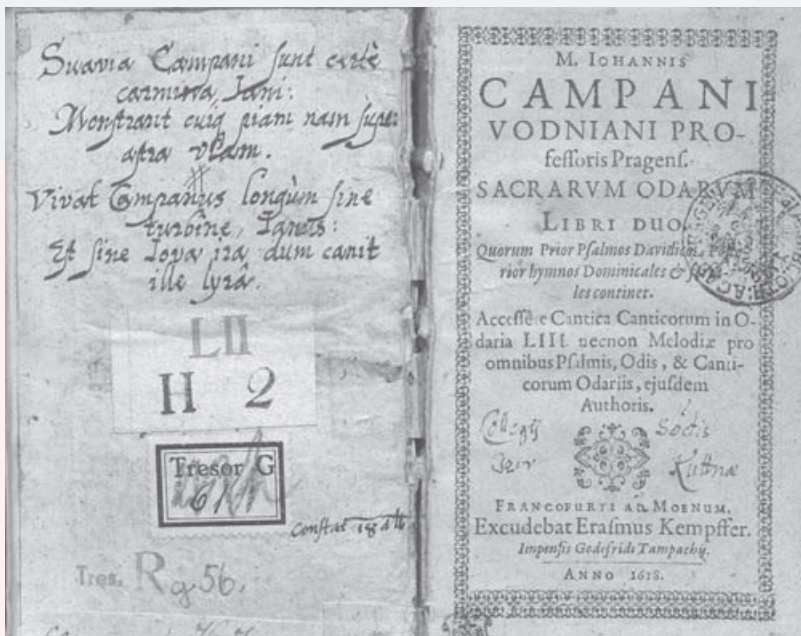 Suavia Campani sunt certè
carmina Jani:
Monstrant cuiq́ piam nam super
astra viam.
Vivat Campanus longùm sine
turbine, Janus:
Et sine Jova ira dum canit
ille lyrâ.
LII
H 2
Tresor G
61
Constat 18
Tres. Rg 56.
M. IOHANNIS
CAMPANI
VODNIANI PRO-
feſſoris Pragenſ.
SACRARVM ODARVM
LIBRI DUO.
Quorum Prior Pſalmos Davidicos, Poſte-
rior hymnos Dominicales &
les continet.
Acceſſere Cantica Canticorum in O-
daria LIII. necnon Melodiæ pro
omnibus Pſalmis, Odis, & Canti-
corum Odariis, ejuſdem
Authoris.
Collegij Soctis
Kuttnæ
FRANCOFURTI AD MOENUM,
Excudebat Eraſmus Kempffer.
Impenſis Godefridi Tampachij.
ANNO 1618.